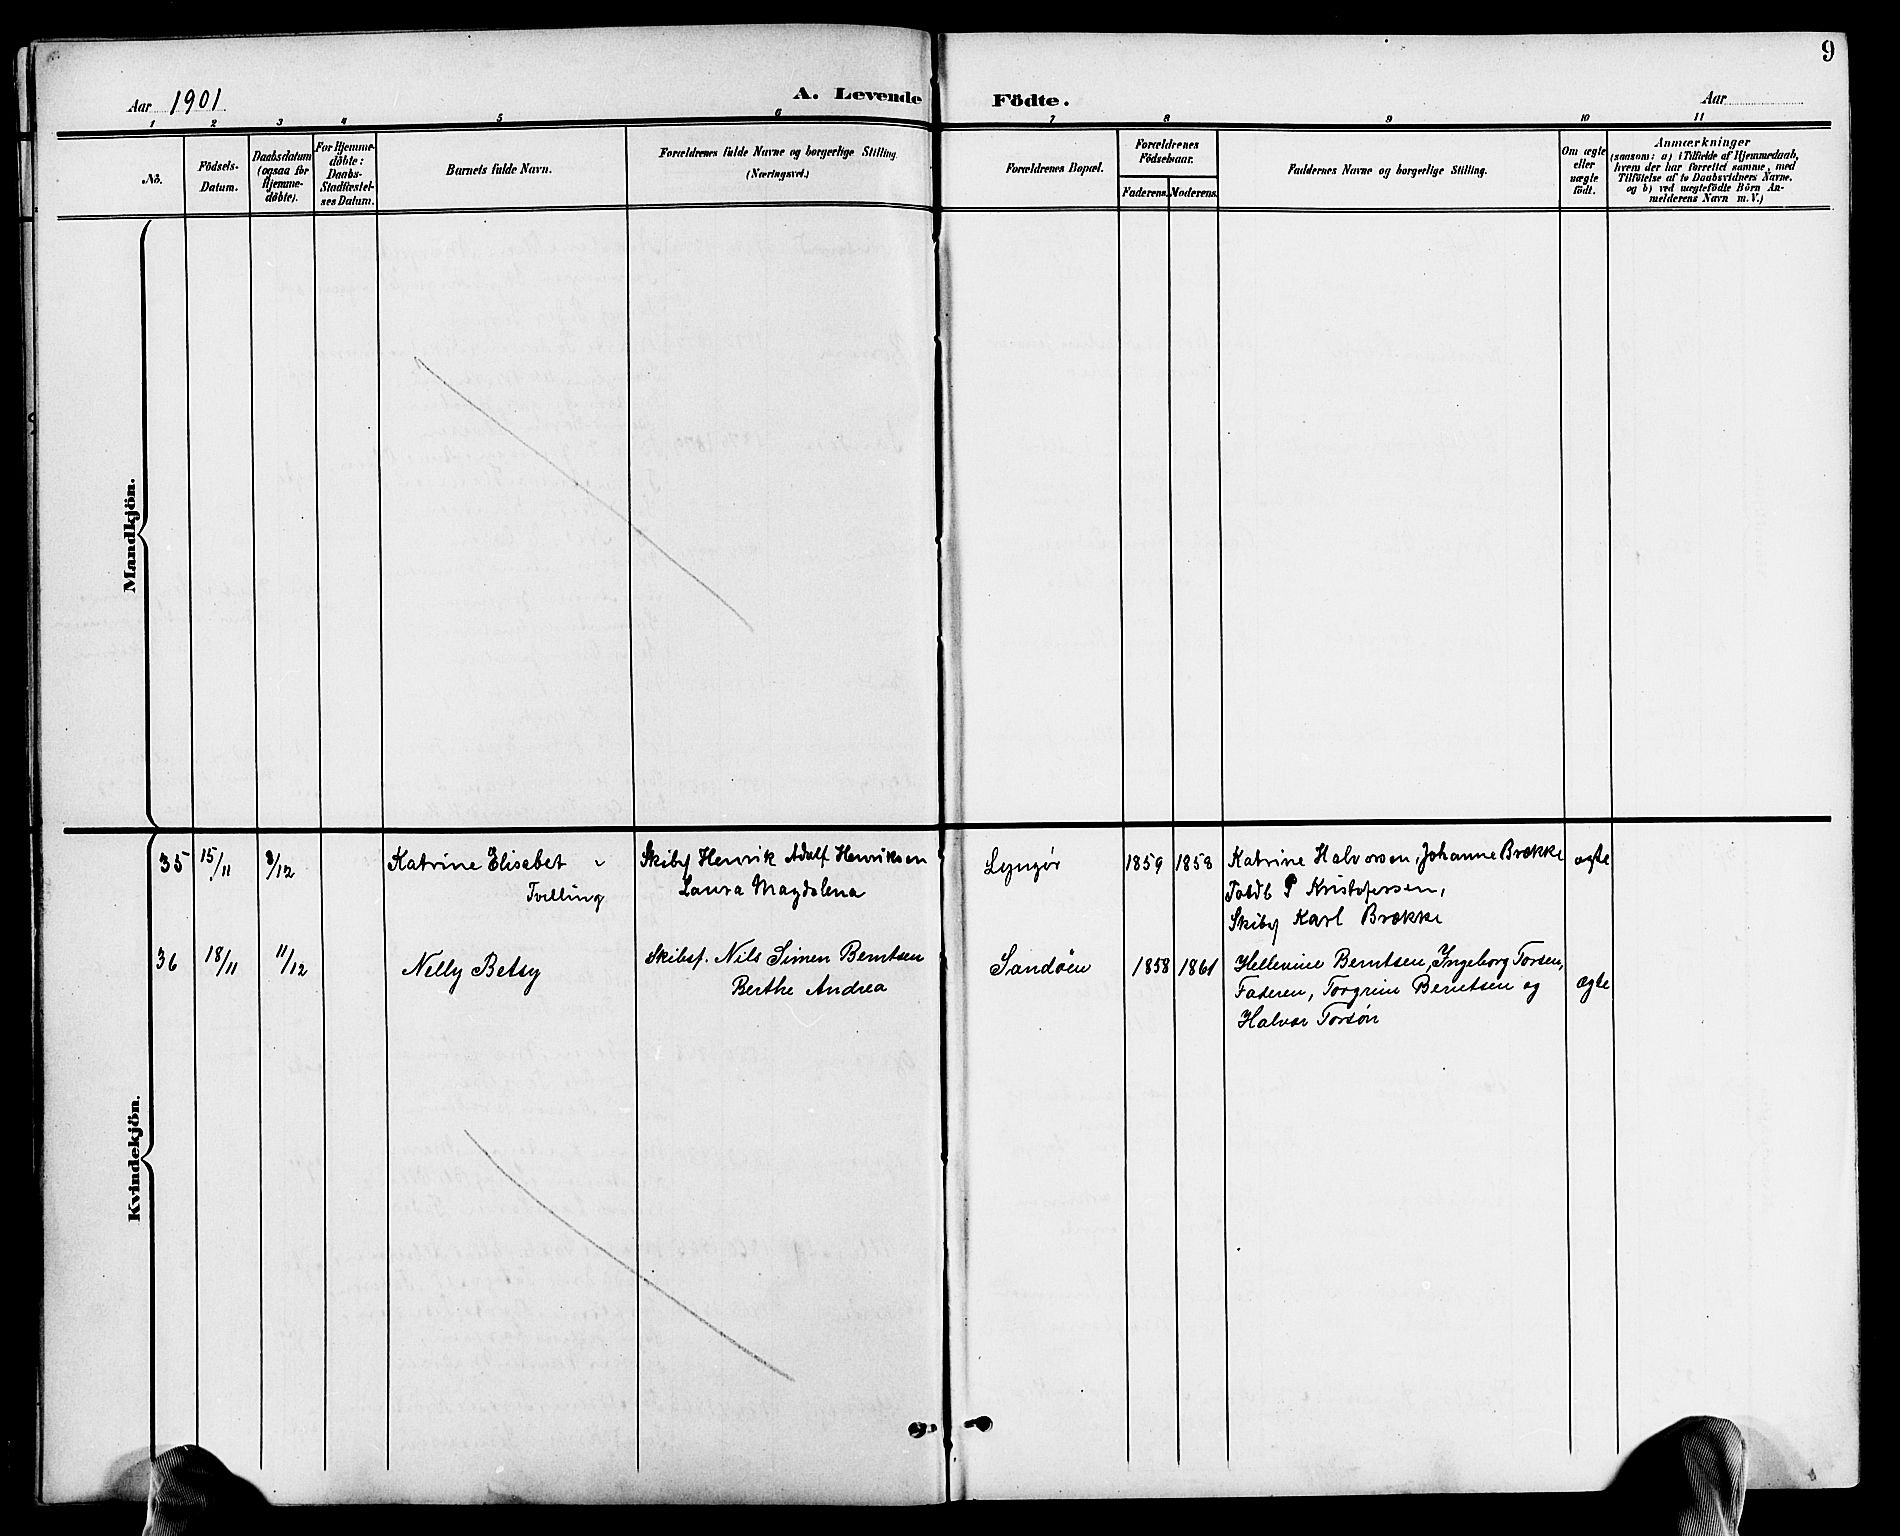 9
Aar 1901
A. Levende Födte.
Aar
1 2 3 4 5 6 7 8 9 10 11
No.
Födsels-
Datum.
Daabsdatum
(ogsaa for
Hjemme-
døbte).
For Hjemme-
døbte:
Daabs-
Stadfæstel-
ses Datum.
Barnets fulde Navn.
Forældrenes fulde Navne og borgerlige Stilling.
(Næringsvei.)
Forældrenes Bopæl.
Forældrenes
Födselsaar.
Faderens. Moderens.
Faddernes Navne og borgerlige Stilling.
Om ægte
eller
uægte
født.
Anmærkninger
(saasom: a) i Tilfælde af Hjemmedaab,
hvem der har forrettet samme, med
Tilföielse af to Daabsvidners Navne.
og b) ved uægtefödte Börn An-
melderens Navn m. V.)
Mandkjön.
Kvindekjön.
35 15/11 8/12 Katrine Elisabet Skibsf Henrik Adolf Henriksen Lyngør 1859 1858 Katrine Halvorsen, Johanne Brække ægte
Tvilling Laura Magdalena Toldb P Kristofersen,
Skibsf Karl Brække
36 18/11 11/12 Nelly Betsy Skibsf. Nils Simen Berntsen Sandøen 1858 1861 Hellevine Berntsen, Ingeborg Torsen, ægte
Berthe Andrea Faderen, Torgrim Berntsen og
Halvor Torsøn